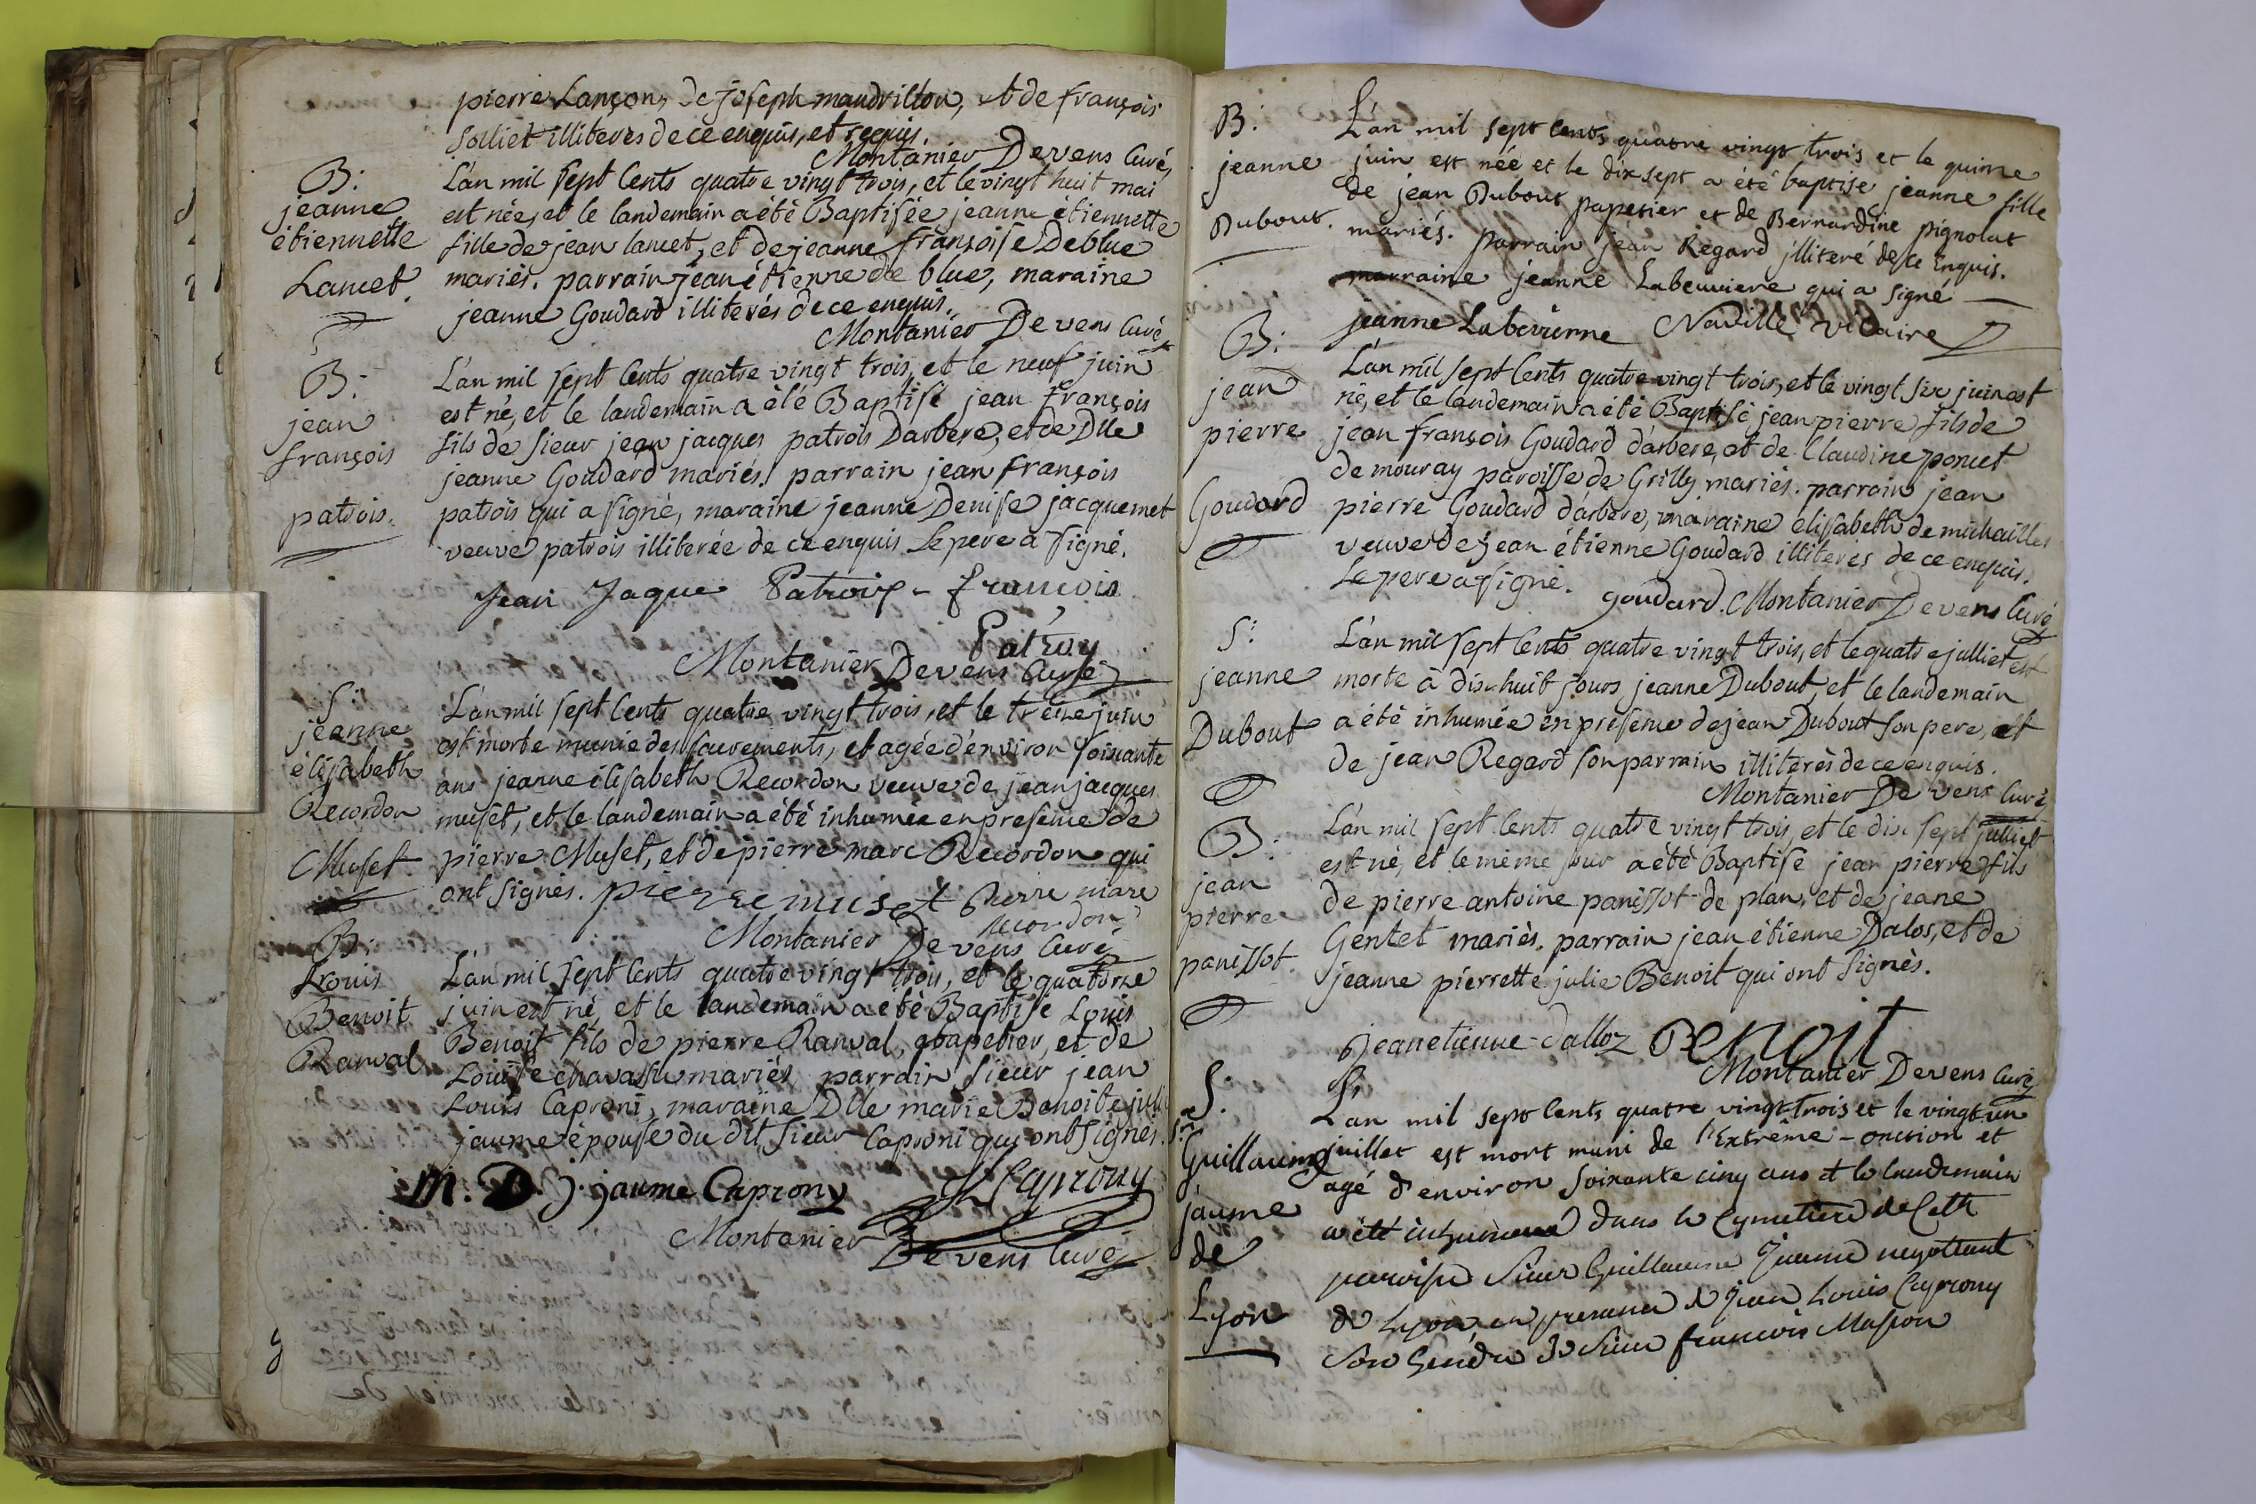 pierre Lançon, de joseph maudrillon, et de françois
solliet illiterés de ce enquis, et requis.
Montanier Devens Curé
B:
jeanne
étiennette
Lancet.
L'an mil sept Cents quatre vingt trois, et le vingt huit mai
est née, et le landemain a été Baptisée jeanne étiennette
fille de jean lancet, et de jeanne françoise Deblue
mariés. parrain jean étienne de blue, maraine
jeanne Goudard illiterés de ce enquis.
Montanier Devens Curé
B:
jean
françois
patrois.
L'an mil sept Cents quatre vingt trois, et le neuf juin
est né, et le landemain a élé Baptisé jean françois
fils de sieur jean jacques patrois Darbere, et de Dlle
jeanne Goudard mariés. parrain jean françois
patrois qui a signé, maraine jeanne Denise jacquemet
veuve patrois illiterée de ce enquis Le pere a signé.
Jean Jaque Patroip - francois
Patroy
Montanier Devens Curé
S:
jeanne
élisabeth
Recordon
Muset
L'an mil sept Cents quatre vingt trois, et le treise juin
est morte munie des sacrements, et agée d'environ soisante
ans jeanne élisabeth Recordon veuve de jean jacques
muset, et le landemain a été inhumée en presence de
pierre Muset, et de pierre marc Recordon qui
ont signés. pierre muset Pierre marc
recordon
Montanier Devens Curé
B:
Louis
Benoit
Ranval
L'an mil sept Cents quatre vingt trois, et le quatorse
juin est né, et le landemain a été Baptisé Louis
Benoit fils de pierre Ranval, papetier, et de
Louise chavassu mariés parrain sieur jean
Louis Caproni, maraine Dlle marie Benoite julie
jaume épouse du dit sieur Caproni qui ont signés.
M. B. j. jaume Caprony JL Caprony
Montanier Devens Curé
B:
jeanne
Dubout.
L'an mil sept cents quatre vingt trois et le quinze
juin est née et le dix sept a été baptisé jeanne fille
de jean Dubout papetier et de Bernardine pignolat
mariés. parrain jean Regard illiteré de ce Enquis.
marraine jeanne Labeuviere qui a signé
jeanne Labevierne Naville vicaire
B:
jean
pierre
Goudard
L'an mil sept Cents quatre vingt trois, et le vingt six juin est
né, et le landemain a été Baptisé jean pierre fils de
jean françois Goudard d'arbere, et de Claudine poncet
de mouray paroisse de Grilly mariés. parrain jean
pierre Goudard d'arbere, maraine élisabeth de michailles
veuve de jean étienne Goudard illiteres de ce enquis.
Le pere a signé. goudard. Montanier Devens Curé
S:
jeanne
Dubout
L'an mil sept Cents quatre vingt trois, et le quatre julliet est
morte à dix huit jours jeanne Dubout, et le landemain
a été inhumée en presence de jean Dubout son pere, et
de jean Regard son parrain illiterés de ce enquis.
Montanier De vens Curé
B:
jean
pierre
panissot.
L'an mil sept Cents quatre vingt trois, et le dix sept julliet
est né, et le même jour a été Baptisé jean pierre fils
de pierre antoine panissot de plan, et de jeane
Gentet mariés. parrain jean étienne Dalos, et de
jeanne pierrette julie Benoit qui ont signés.
jean etienne dalloz Benoit
Montanier Devens Curé
S.
Sr
Guillaume
jaume
de
Lyon
L'an mil sept Cents quatre vingt-trois et le vingt-un
juillet est mort muni de l'Extrême-onction et
agé d'environ soixante cinq ans et le landemain
a été inhumé dans le Cymetiere de Cette
paroisse sieur Guillaume Jaume negotiant
de Lyon en presence de jean Louis Caprony
son Gendre de sieur francois Masson